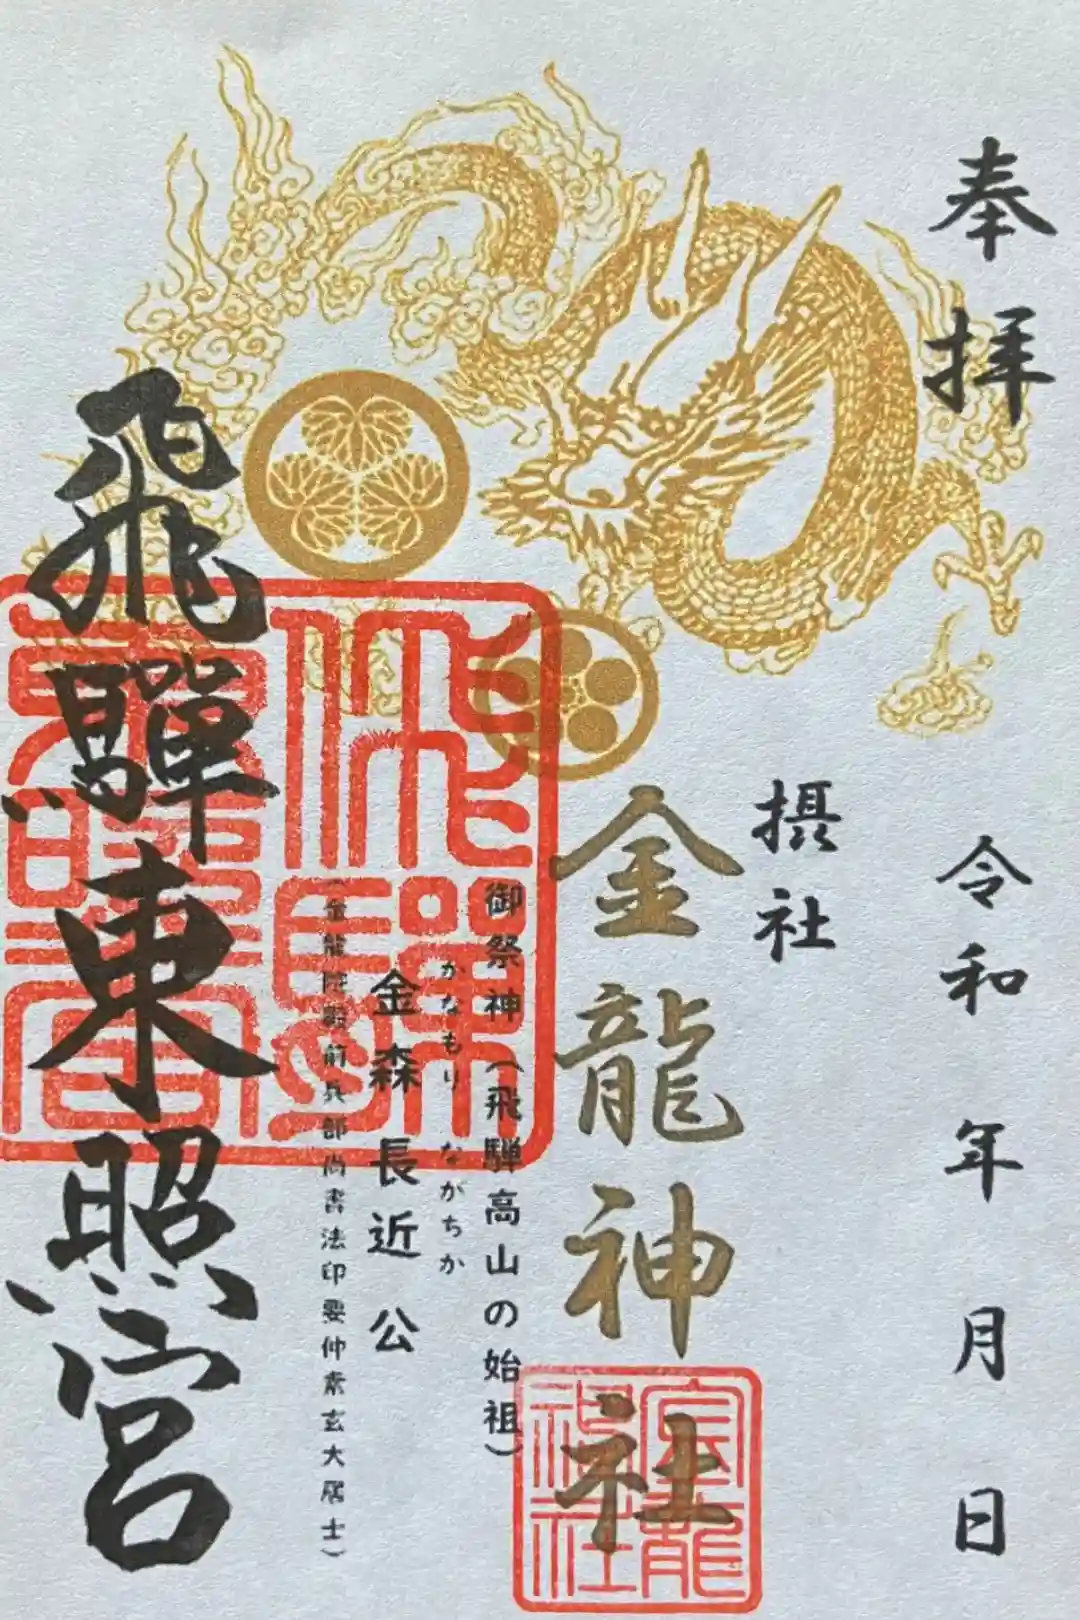 奉拝
令和 年 月 日
摂社
金龍神社
御祭神（飛騨高山の始祖）
かなもり ながちか
金森 長近 公
（金龍院殿前兵部尚書法印要仲素玄大居士）
飛驒東照宮